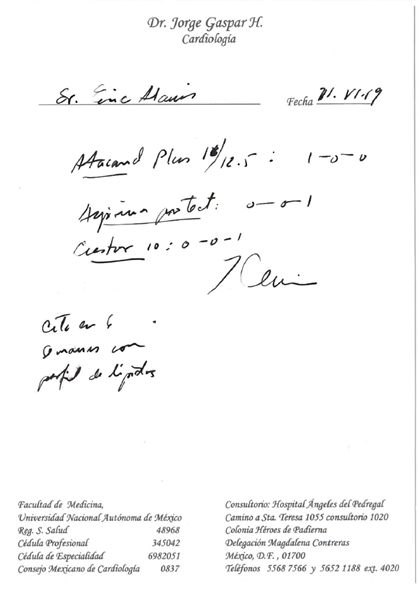 Dr. Jorge Gaspar H.
Cardiología
Sr. Eric Alanis
Fecha 21.VI.19
Atacand Plus 16/12.5 : 1-0-0
Aspirina protect: 0-0-1
Crestor 10 : 0-0-1
Cita en 6
semanas con
perfil de lípidos
Facultad de Medicina,
Universidad Nacional Autónoma de México
Reg. S. Salud 48968
Cédula Profesional 345042
Cédula de Especialidad 6982051
Consejo Mexicano de Cardiología 0837
Consultorio: Hospital Ángeles del Pedregal
Camino a Sta. Teresa 1055 consultorio 1020
Colonia Héroes de Padierna
Delegación Magdalena Contreras
México, D.F. , 01700
Teléfonos 5568 7566 y 5652 1188 ext. 4020